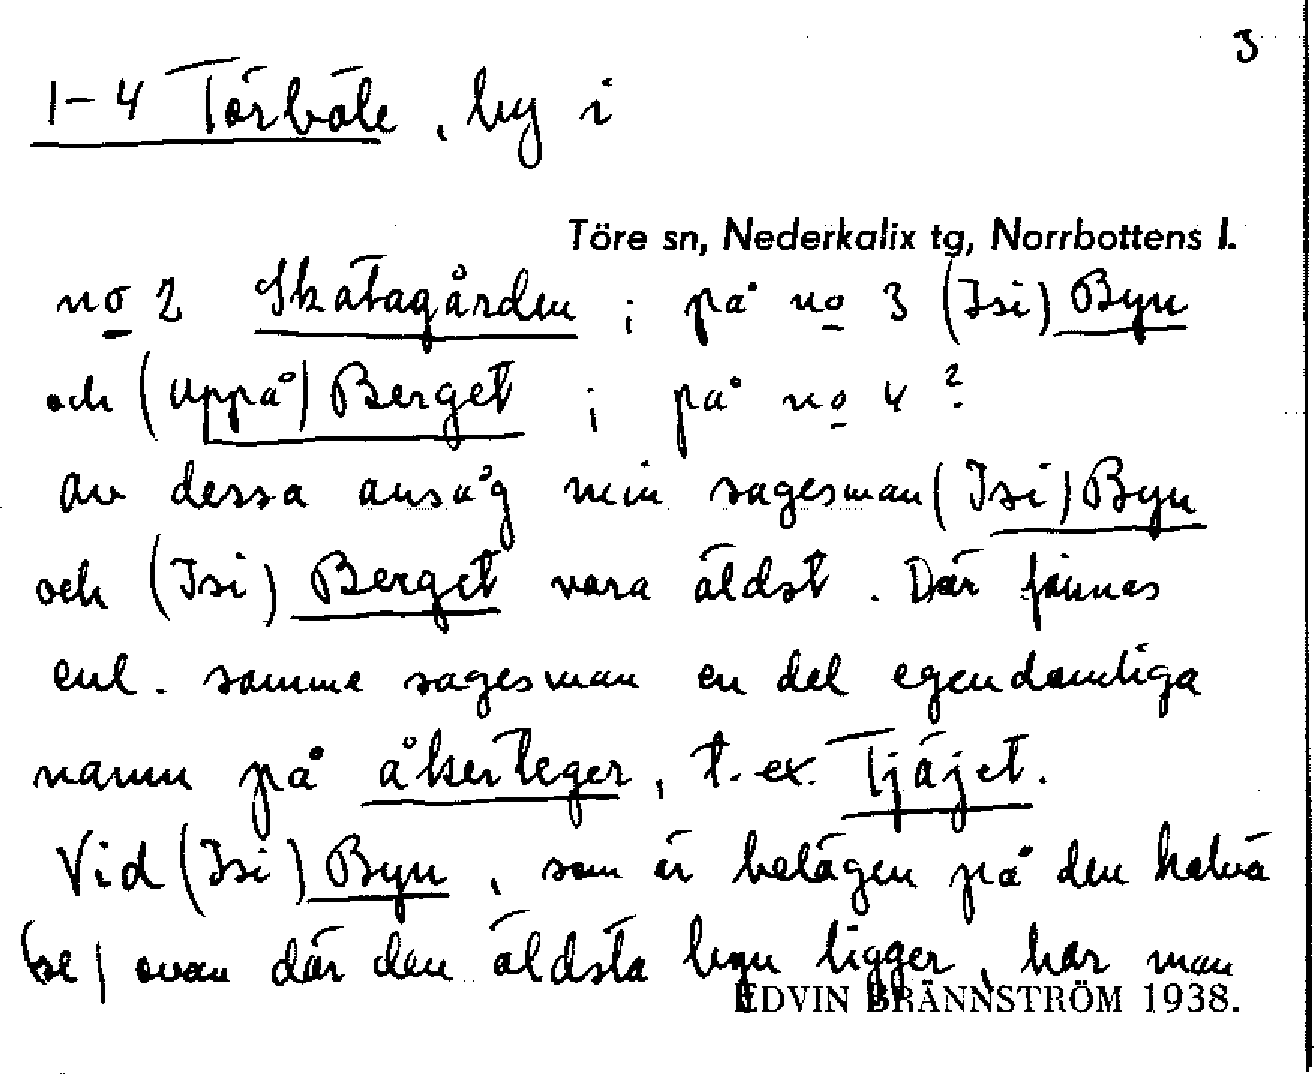 3
1-4 Törböle, by i
Töre sn, Nederkalix tg, Norrbottens l.
no 2 Skatagården ; på no 3 (Isi) Byn
och (uppå) Berget ; på no 4 ?
av dessa ansåg min sagesman (Isi) Byn
och (Isi) Berget vara äldst. Där finnes
enl. samme sagesman en del egendomliga
namn på åkerteger, t. ex. Tjäjet.
Vid (Isi) Byn, som är belägen på den halvö
(se) ovan där den äldsta byn ligger, har man
EDVIN BRÄNNSTRÖM 1938.